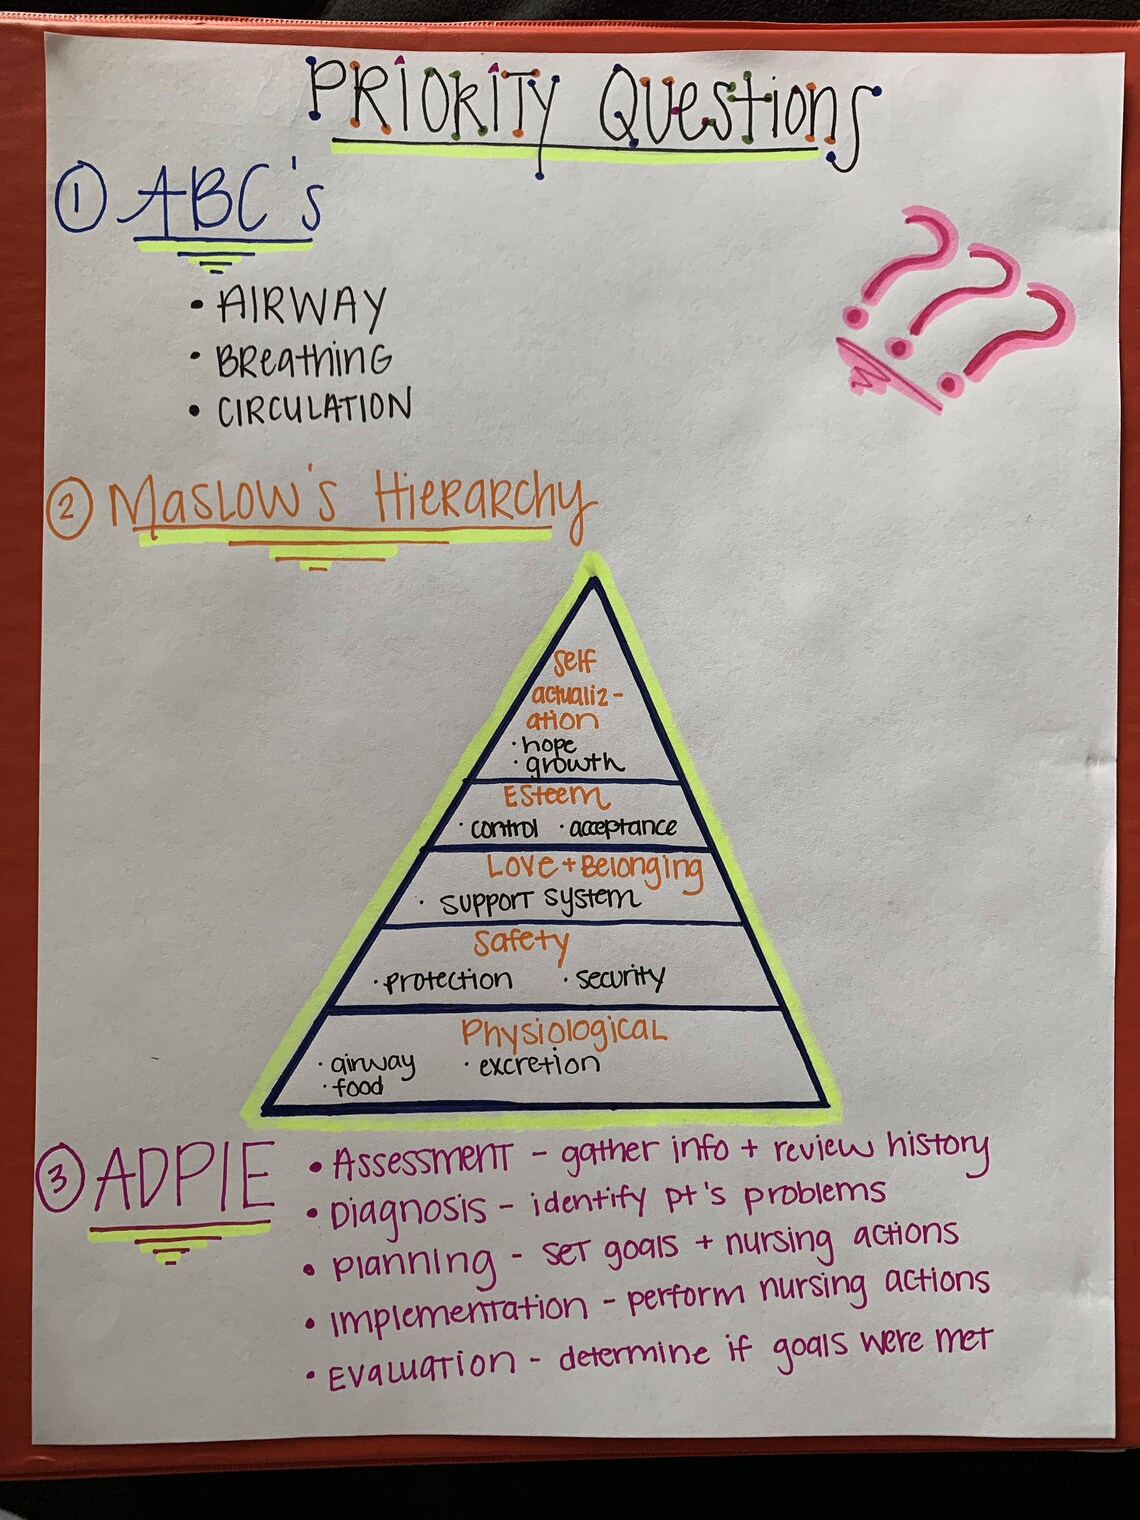 PRIORITY QUESTIONS
① ABC's
• AIRWAY
• BREATHING
• CIRCULATION
② MASLOW'S HIERARCHY
Self
actualiz-
ation
• hope
• growth
Esteem
• control • acceptance
Love + Belonging
• support system
Safety
• protection • security
Physiological
• airway • excretion
• food
③ ADPIE
• Assessment - gather info + review history
• Diagnosis - identify pt's problems
• Planning - set goals + nursing actions
• Implementation - perform nursing actions
• Evaluation - determine if goals were met